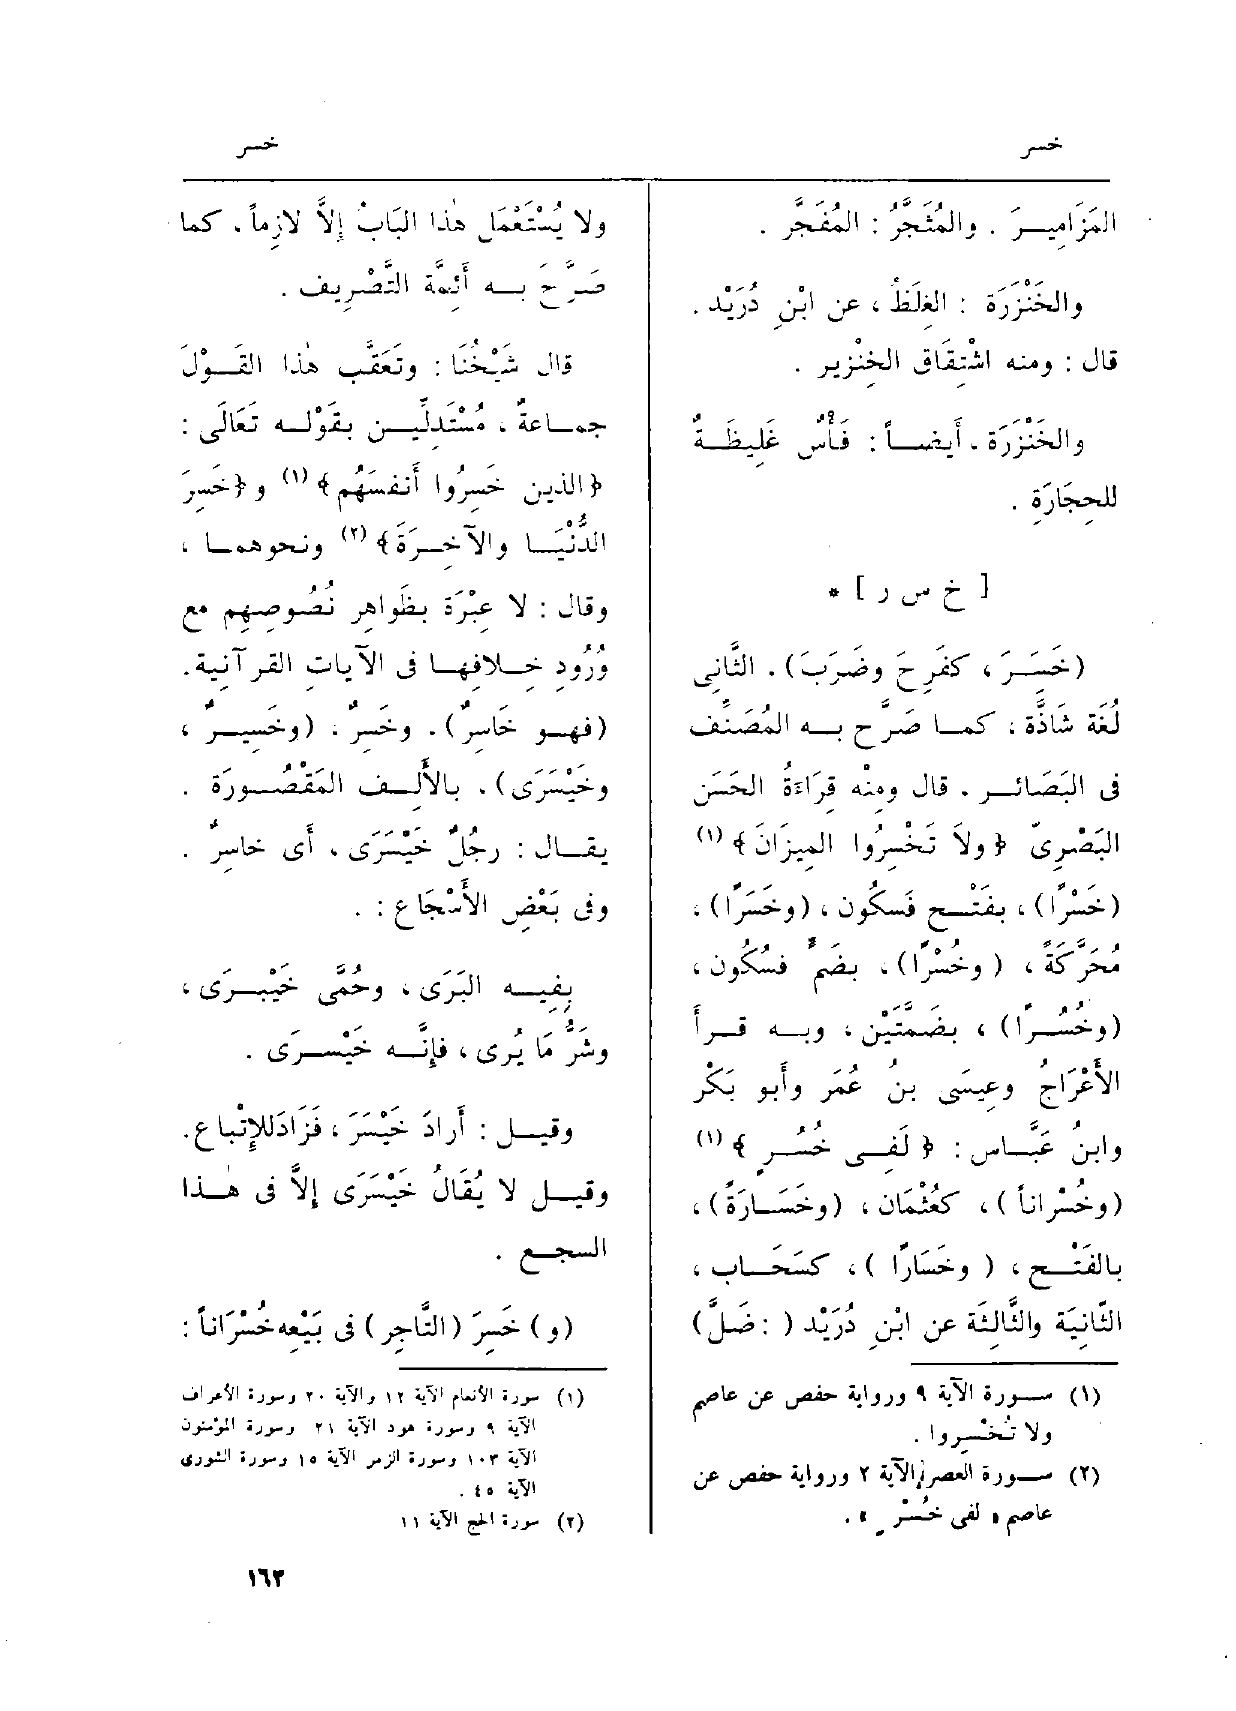 خسر
خسر
المَزَامِيــرَ . والمُثَجَّرُ : المُفَجَّر .
والخَنْزَرَة : الغِلَظُ ، عن ابْنِ دُرَيْد .
قال : ومنه اشْتِقاق الخِنْزير .
والخَنْزَرَة ، أَيضــاً : فَأْسٌ غَلِيظَــةٌ
للحِجَارَة .
[ خ س ر ] *
(خَسَــرَ ، كفَرِحَ وضَرَبَ) . الثَّانِى
لُغَة شَاذَّة ، كمــا صَرَّح بــه المُصَنِّف
فى البَصَائــر . قال ومِنْه قِرَاءَةُ الحَسَن
البَصْرِىّ ﴿ ولاَ تَخْسِرُوا المِيزَانَ ﴾ (١)
(خَسْرًا) ، بفَتْــح فَسكُون ، (وخَسَرًا) ،
مُحَرَّكَةً ، ( وخُسْرًا) ، بضَمٍّ فسُكُون ،
(وخُسُــرًا) ، بضَمَّتَيْن ، وبــه قــرأَ
الأَعْرَاجُ وعِيسَى بنُ عُمَر وأَبو بَكْر
وابنُ عَبَّــاس : ﴿ لَفِــى خُسُــرٍ ﴾ (١)
(وخُسْراناً ) ، كعُثْمَان ، (وخَسَــارَةً) ،
بالفَتْــح ، ( وخَسَارًا ) ، كسَحَــاب ،
الثَّانِيَة والثَّالِثَة عن ابْنِ دُرَيْد ( : ضَلَّ)
(١) ســورة الآية ٩ ورواية حفص عن عاصم
ولا تُخْسِروا .
(٢) ســورة العصر/الآية ٢ ورواية حفص عن
عاصم « لفى خُسْــرٍ » .
ولا يُسْتَعْمَل هٰذا البَابُ إِلاَّ لازِماً ، كما
صَرَّحَ بــه أَئمَّة التَّصْرِيف .
قال شَيْخُنَا : وتَعَقَّب هٰذا القَــوْلَ
جمــاعَةٌ ، مُسْتَدِلِّيــن بقَوْلِــه تَعَالَى :
﴿الذين خَسِرُوا أَنفسَهُم﴾ (١) و﴿خَسِرَ
الدُّنْيَــا والآخِــرَةَ﴾ (٢) ونحوهمــا ،
وقال : لا عِبْرَة بظَواهِر نُصُوصِهم مع
وُرُودِ خِــلافِهــا فى الآيات القرآنِية .
(فهــو خَاسِرٌ) . وخَسِرٌ ، (وخَسِيــرٌ ،
وخَيْسَرَى) ، بالأَلِــف المَقْصُــورَة .
يقــال : رجُلٌ خَيْسَرَى ، أَى خاسِرٌ .
وفى بَعْضِ الأَسْجَاع : .
بِفِيــه البَرَى ، وحُمَّى خَيْبَــرَى ،
وشَرُّ مَا يُرى ، فإِنَّــه خَيْســرَى .
وقيــل : أَرادَ خَيْسَرَ ، فَزَادَ للإِتْباع .
وقيــل لا يُقَالُ خَيْسَرَى إِلاَّ فى هٰــذا
السجــع .
(و) خَسِرَ (التَّاجِر) فى بَيْعِه خُسْرَاناً :
(١) سورة الأنعام الآية ١٢ والآية ٢٠ وسورة الأعراف
الآية ٩ وسورة هود الآية ٢١ وسورة المؤمنون
الآية ١٠٣ وسورة الزمر الآية ١٥ وسورة الشورى
الآية ٤٥ .
(٢) سورة الحج الآية ١١
١٦٣